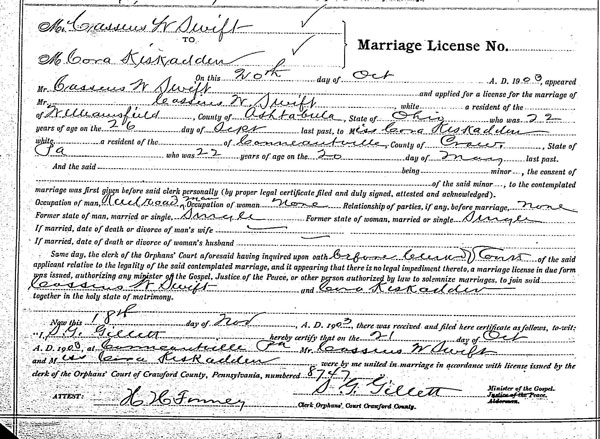 Mr. Cassius W Swift
TO
M Cora Kiskadden
Marriage License No.
On this 20th day of Oct A. D. 1903, appeared
Mr. Cassius W Swift and applied for a license for the marriage of
Mr. Cassius W. Swift, white a resident of the
of Williamsfield, County of Ashtabula, State of Ohio who was 22
years of age on the 26 day of Sept last past, to Miss Cora Kiskadden
white, a resident of Conneautville, County of Craw, State of
Pa who was 22 years of age on the 20 day of May last past.
And the said being minor, the consent of
of the said minor, to the contemplated
marriage was first given before said clerk personally (by proper legal certificate filed and duly signed, attested and acknowledged).
Occupation of man, Railroad man Occupation of woman None Relationship of parties, if any, before marriage, None
Former state of man, married or single, Single Former state of woman, married or single Single
If married, date of death or divorce of man's wife
If married, date of death or divorce of woman's husband
Same day, the clerk of the Orphans' Court aforesaid having inquired upon oath before Clerk of Court of the said
applicant relative to the legality of the said contemplated marriage, and it appearing that there is no legal impediment thereto, a marriage license in due form
was issued, authorizing any minister of the Gospel, Justice of the Peace, or other person authorized by law to solemnize marriages, to join said
Cassius W Swift and Cora Kiskadden
together in the holy state of matrimony.
Now this 18th day of Nov A. D. 1903, there was received and filed here certificate as follows, to-wit:
"I, S. G. Gillett hereby certify that on the 21 day of Oct
A. D. 1903, at Conneautville Pa Mr. Cassius W Swift
and Miss Cora Kiskadden were by me united in marriage in accordance with license issued by the
clerk of the Orphans' Court of Crawford County, Pennsylvania, numbered 8747
S. G. Gillett
Minister of the Gospel.
Justice of the Peace.
Alderman.
ATTEST:
Clerk Orphans' Court Crawford County.